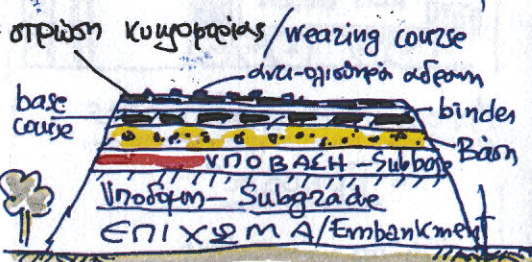 στρώση κυκλοφορίας/wearing course
αντι-ολισθηρά αδρανή
base course
binder
Βάση
ΥΠΟΒΑΣΗ - Subbase
Υποδομη - Subgrade
ΕΠΙΧΩΜΑ/Embankment